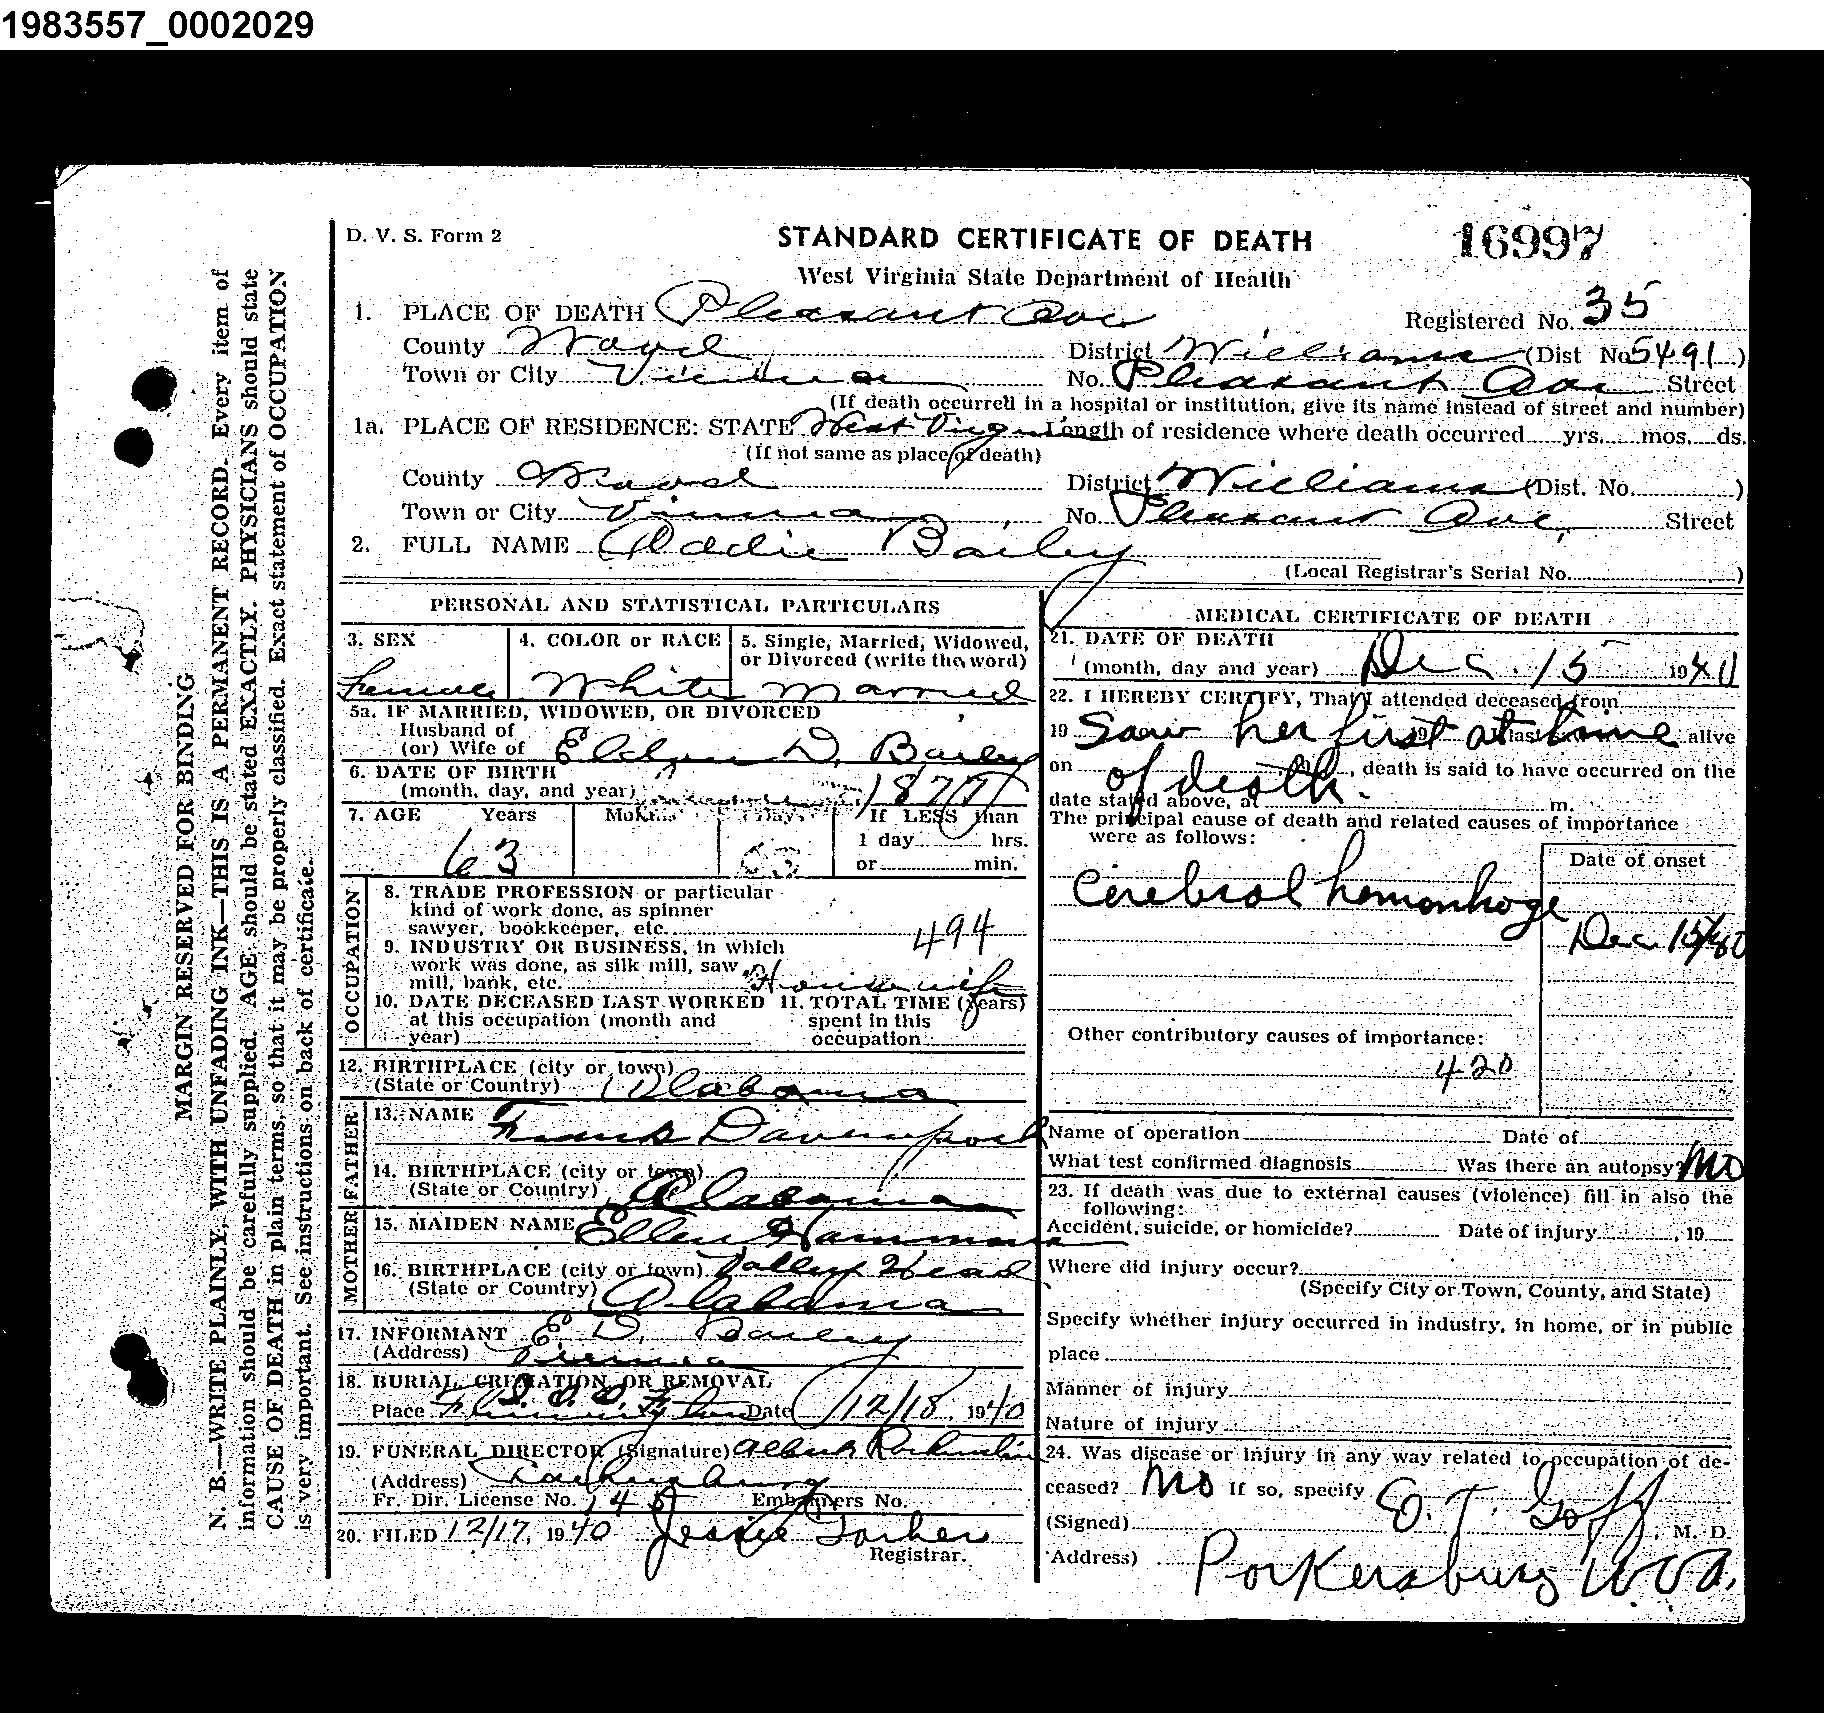 1983557_0002029
D. V. S. Form 2
STANDARD CERTIFICATE OF DEATH
16997
West Virginia State Department of Health
1. PLACE OF DEATH Pleasant Ave
Registered No. 35
County Wood District Williams (Dist No 5491)
Town or City Vienna No. Pleasant Ave Street
(If death occurred in a hospital or institution, give its name instead of street and number)
1a. PLACE OF RESIDENCE: STATE West Virginia Length of residence where death occurred yrs. mos. ds.
(If not same as place of death)
County Wood District Williams (Dist. No. )
Town or City Vienna No. Pleasant Ave, Street
2. FULL NAME Addie Bailey
(Local Registrar's Serial No. )
PERSONAL AND STATISTICAL PARTICULARS
3. SEX 4. COLOR or RACE 5. Single, Married, Widowed, or Divorced (write the word)
Female White Married
5a. IF MARRIED, WIDOWED, OR DIVORCED
Husband of
(or) Wife of D. Bailey
6. DATE OF BIRTH
(month, day, and year) 1877
7. AGE Years Months Days If LESS than
63
1 day hrs.
or min.
OCCUPATION
8. TRADE PROFESSION or particular
kind of work done, as spinner
sawyer, bookkeeper, etc. 494
9. INDUSTRY OR BUSINESS, in which
work was done, as silk mill, saw
mill, bank, etc. Housewife
10. DATE DECEASED LAST WORKED 11. TOTAL TIME (years)
at this occupation (month and spent in this
year) occupation
12. BIRTHPLACE (city or town)
(State or Country) Alabama
FATHER
13. NAME Frank Davenport
14. BIRTHPLACE (city or town)
(State or Country) Alabama
MOTHER
15. MAIDEN NAME Ellen
16. BIRTHPLACE (city or town) Valley Head
(State or Country) Alabama
17. INFORMANT E. D. Bailey
(Address) Vienna
18. BURIAL CREMATION OR REMOVAL
Place Date 12/18 1940
19. FUNERAL DIRECTOR (Signature)
(Address) Parkersburg
Fr. Dir. License No. Embalmers No.
20. FILED 12/17, 1940 Jessie
Registrar.
MEDICAL CERTIFICATE OF DEATH
21. DATE OF DEATH
(month, day and year) Dec. 15 1940
22. I HEREBY CERTIFY, That I attended deceased from
19 Saw her first at time alive
on of death. , death is said to have occurred on the
date stated above, at m.
The principal cause of death and related causes of importance
were as follows:
Date of onset
Cerebral hemorrhage
Dec 15/40
Other contributory causes of importance:
420
Name of operation Date of
What test confirmed diagnosis Was there an autopsy? No
23. If death was due to external causes (violence) fill in also the
following:
Accident, suicide, or homicide? Date of injury , 19
Where did injury occur?
(Specify City or Town, County, and State)
Specify whether injury occurred in industry, in home, or in public
place
Manner of injury
Nature of injury
24. Was disease or injury in any way related to occupation of de-
ceased? No If so, specify
(Signed) E. T. Goff, M. D.
Address) Parkersburg W. Va.
MARGIN RESERVED FOR BINDING
N. B.—WRITE PLAINLY, WITH UNFADING INK—THIS IS A PERMANENT RECORD. Every item of
information should be carefully supplied. AGE should be stated EXACTLY. PHYSICIANS should state
CAUSE OF DEATH in plain terms, so that it may be properly classified. Exact statement of OCCUPATION
is very important. See instructions on back of certificate.